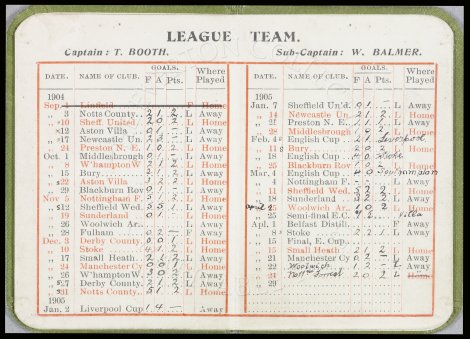 LEAGUE TEAM.
Captain: T. BOOTH. Sub-Captain: W. BALMER.
DATE. NAME OF CLUB. GOALS. F A Pts. Where Played
1904
Sep. 1 Linfield F Home
„ 3 Notts County 2 1 2 L Away
„ 10 Sheff. United 2 0 2 L Home
„ 12 Aston Villa 0 1 — L Away
„ 17 Newcastle Un. 2 3 — L Away
„ 24 Preston N. E. 1 0 2 L Home
Oct. 1 Middlesbro 0 1 — L Away
„ 8 W'hampton W 2 1 2 L Home
„ 15 Bury 2 1 2 L Away
„ 22 Aston Villa 3 2 2 L Home
„ 29 Blackburn Rov L Away
Nov. 5 Nottingham F. 5 1 2 L Home
„ 12 Sheffield Wed. 5 5 1 L Away
„ 19 Sunderland 0 1 L Home
„ 26 Woolwich Ar. L Away
„ 28 Fulham 0 2 — F Away
Dec. 3 Derby County 0 0 1 L Home
„ 10 Stoke 4 1 2 L Home
„ 17 Small Heath 2 1 2 L Away
„ 24 Manchester Cy 0 0 1 L Home
„ 26 W'hampton W 3 0 2 L Away
„ 27 Derby County 2 1 2 L Away
„ 31 Notts County 5 1 2 L Home
1905
Jan. 2 Liverpool Cup 1 4 — Away
DATE. NAME OF CLUB. GOALS. F A Pts. Where Played
1905
Jan. 7 Sheffield Un'd. 0 1 — L Away
„ 14 Newcastle Un. 2 1 2 L Home
„ 21 Preston N. E. 1 1 1 L Away
„ 28 Middlesbrough 1 0 2 L Home
Feb. 4 English Cup 2 1
„ 11 Bury 2 0 2 L Home
„ 18 English Cup 4 0 Stoke
„ 25 Blackburn Rov 1 0 2 L Home
Mar. 4 English Cup 4 0 Southampton
„ 4 Nottingham F. L Away
„ 11 Sheffield Wed. 5 2 2 L Home
„ 18 Sunderland 3 2 2 L Away
April Woolwich Ar. 1 0 2 L Home
„ 25 Semi-final E.C. Villa
Apl. 1 Belfast Distil. F Away
„ 8 Stoke 2 2 1 L Away
„ 15 Final, E. Cup
„ 15 Small Heath 2 1 2 L Home
„ 21 Manchester Cy 0 2 — L Away
„ 22 Woolwich 1 2 — L Away
„ 24 Notts Forest 2 0 2 L Home
„ 29